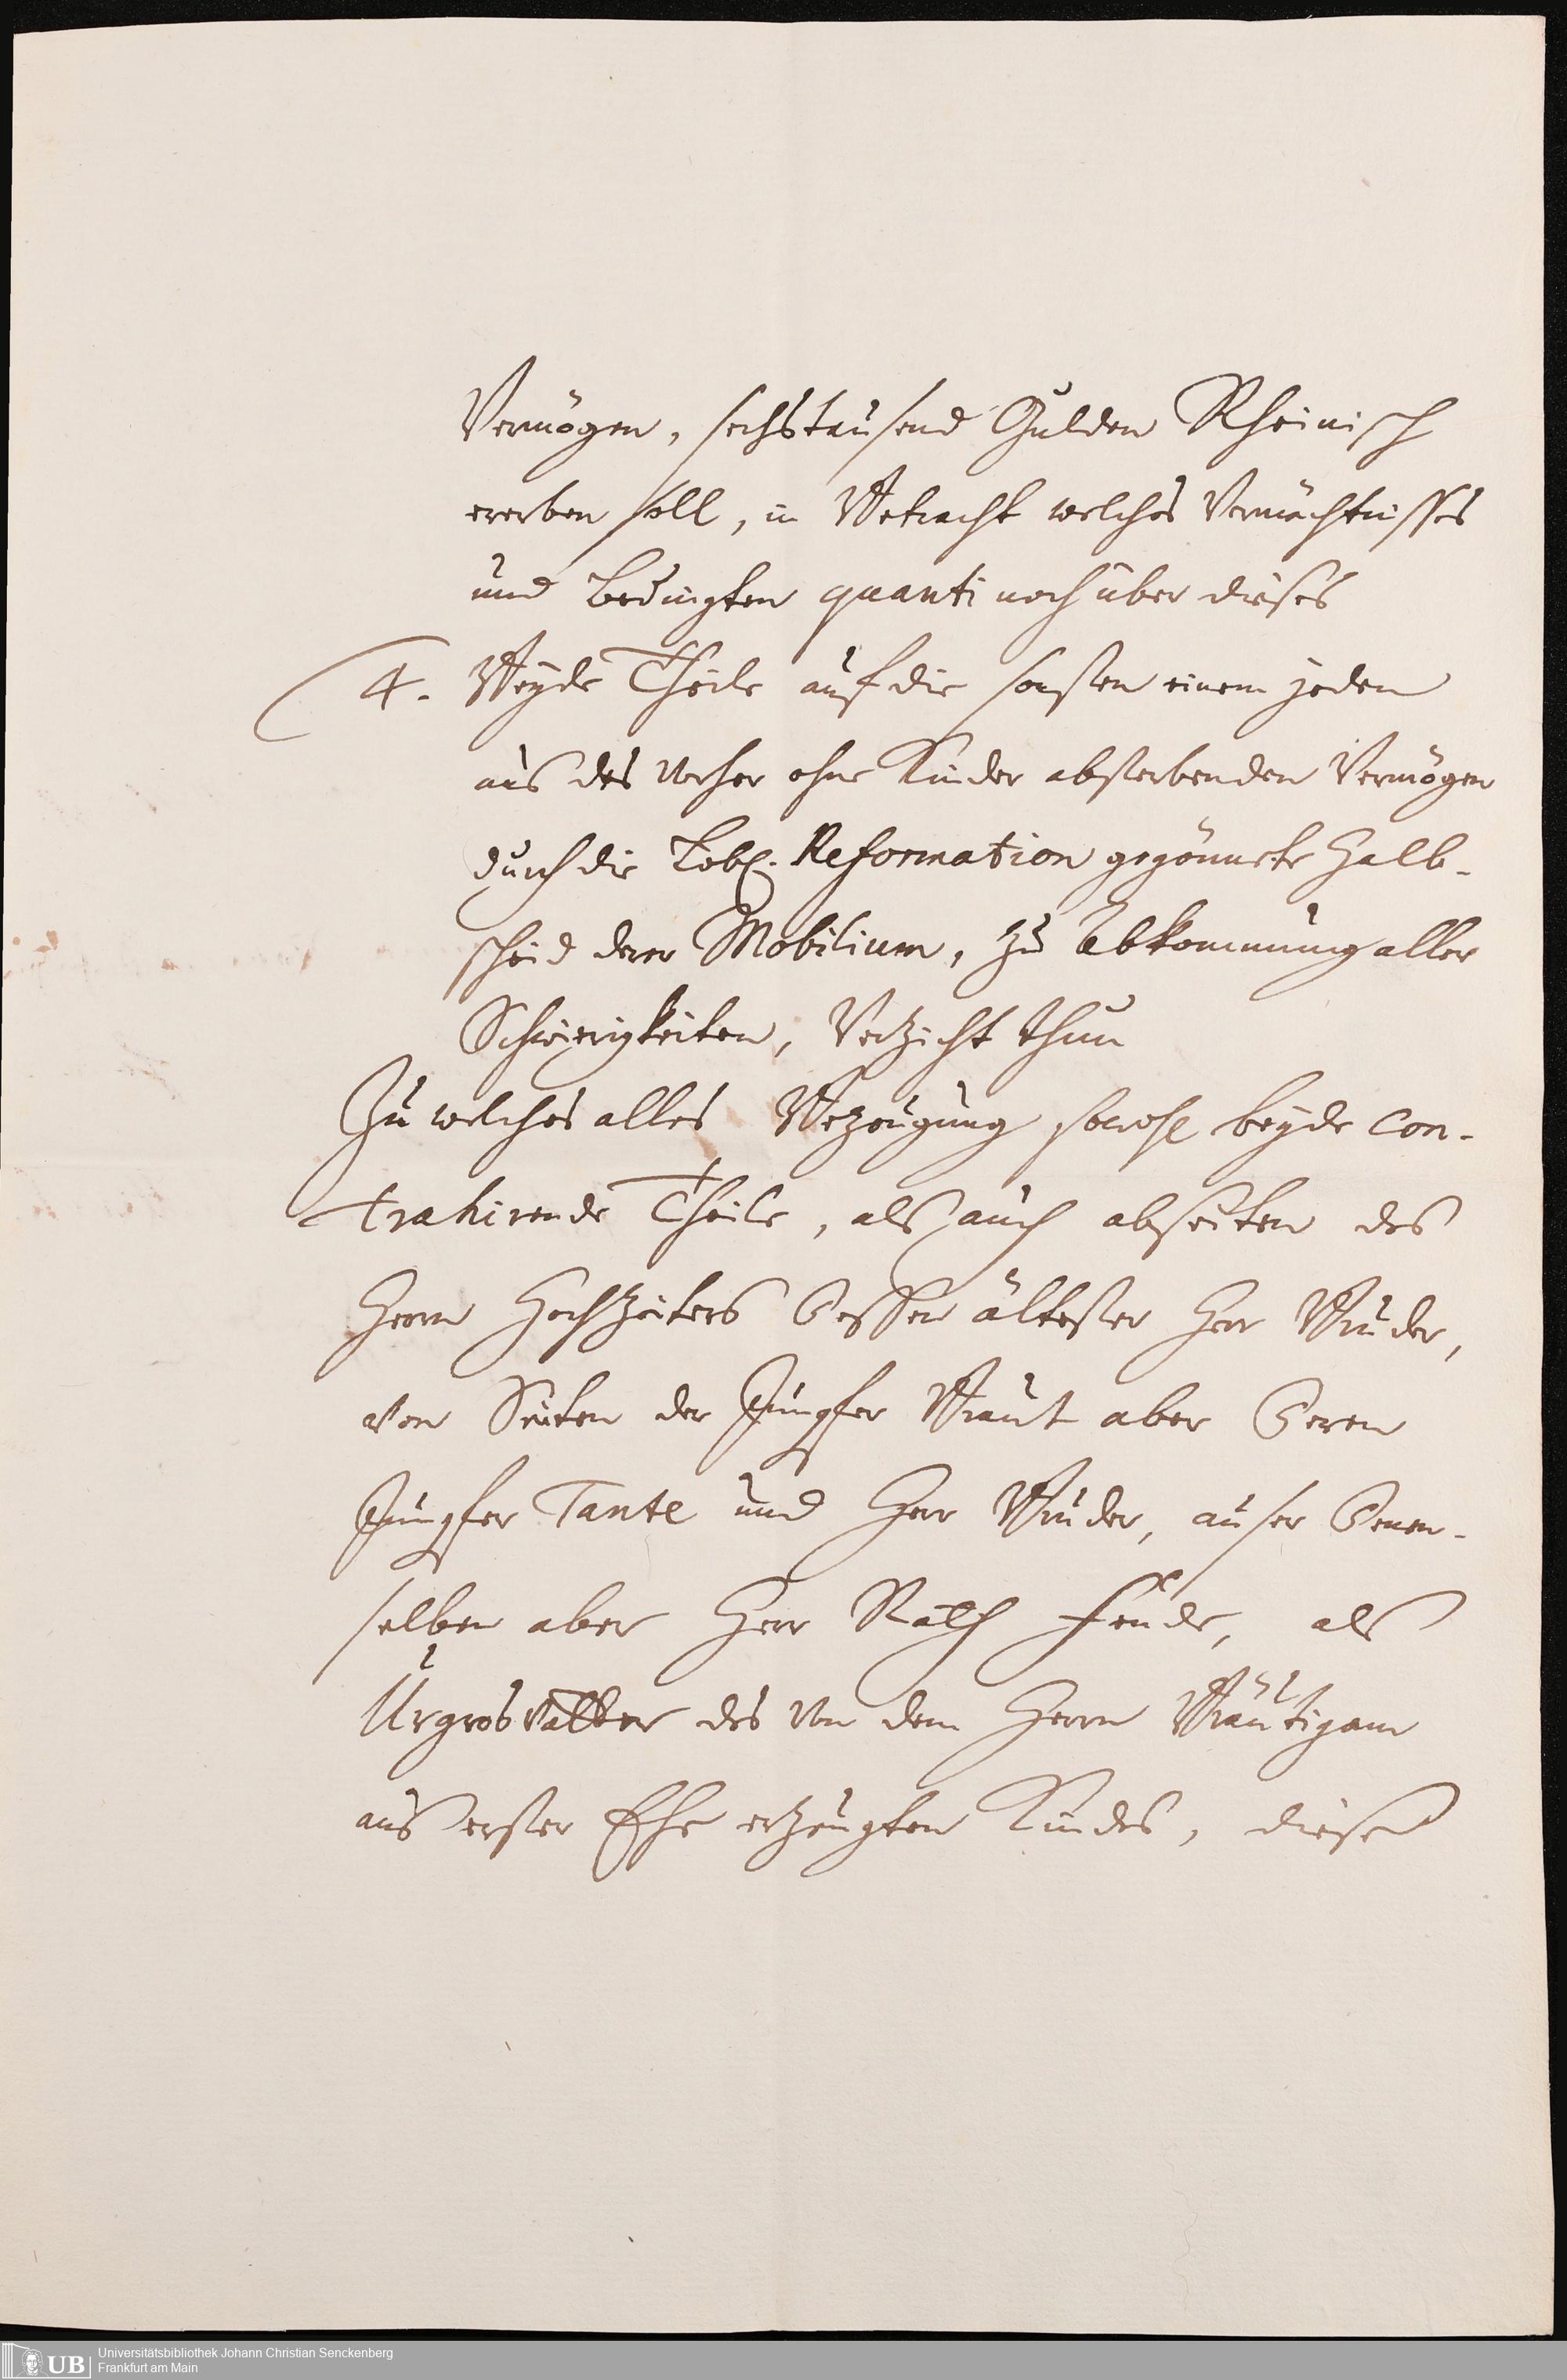 Vermögen, sechstausend Gulden Rheinisch
ererben soll, in Betracht welches Vermächtnisses
und bedingten quanti noch über dieses
4. Beyde Theile auf die sonsten einem jeden
aus des vorher ohne Kinder absterbenden Vermögen
durch die Löbl. Reformation gegönnete Halb-
scheid derer Mobilium, zu Abkommung aller
Schwierigkeiten, Verzicht thun
Zu welches alles Bezeugung sowohl beyde con-
trahirende Theile, als auch abseiten des
Herrn Hochzeiters Dessen ältester Herr Bruder,
von Seiten der Jungfer Braut aber Deren
Jungfer Tante und Herr Bruder, auser Denen-
selben aber Herr Rath Fende, als
Urgrosvatter des von dem Herrn Bräutigam
aus erster Ehe erzeugten Kindes, diese
Universitätsbibliothek Johann Christian Senckenberg
Frankfurt am Main
UB